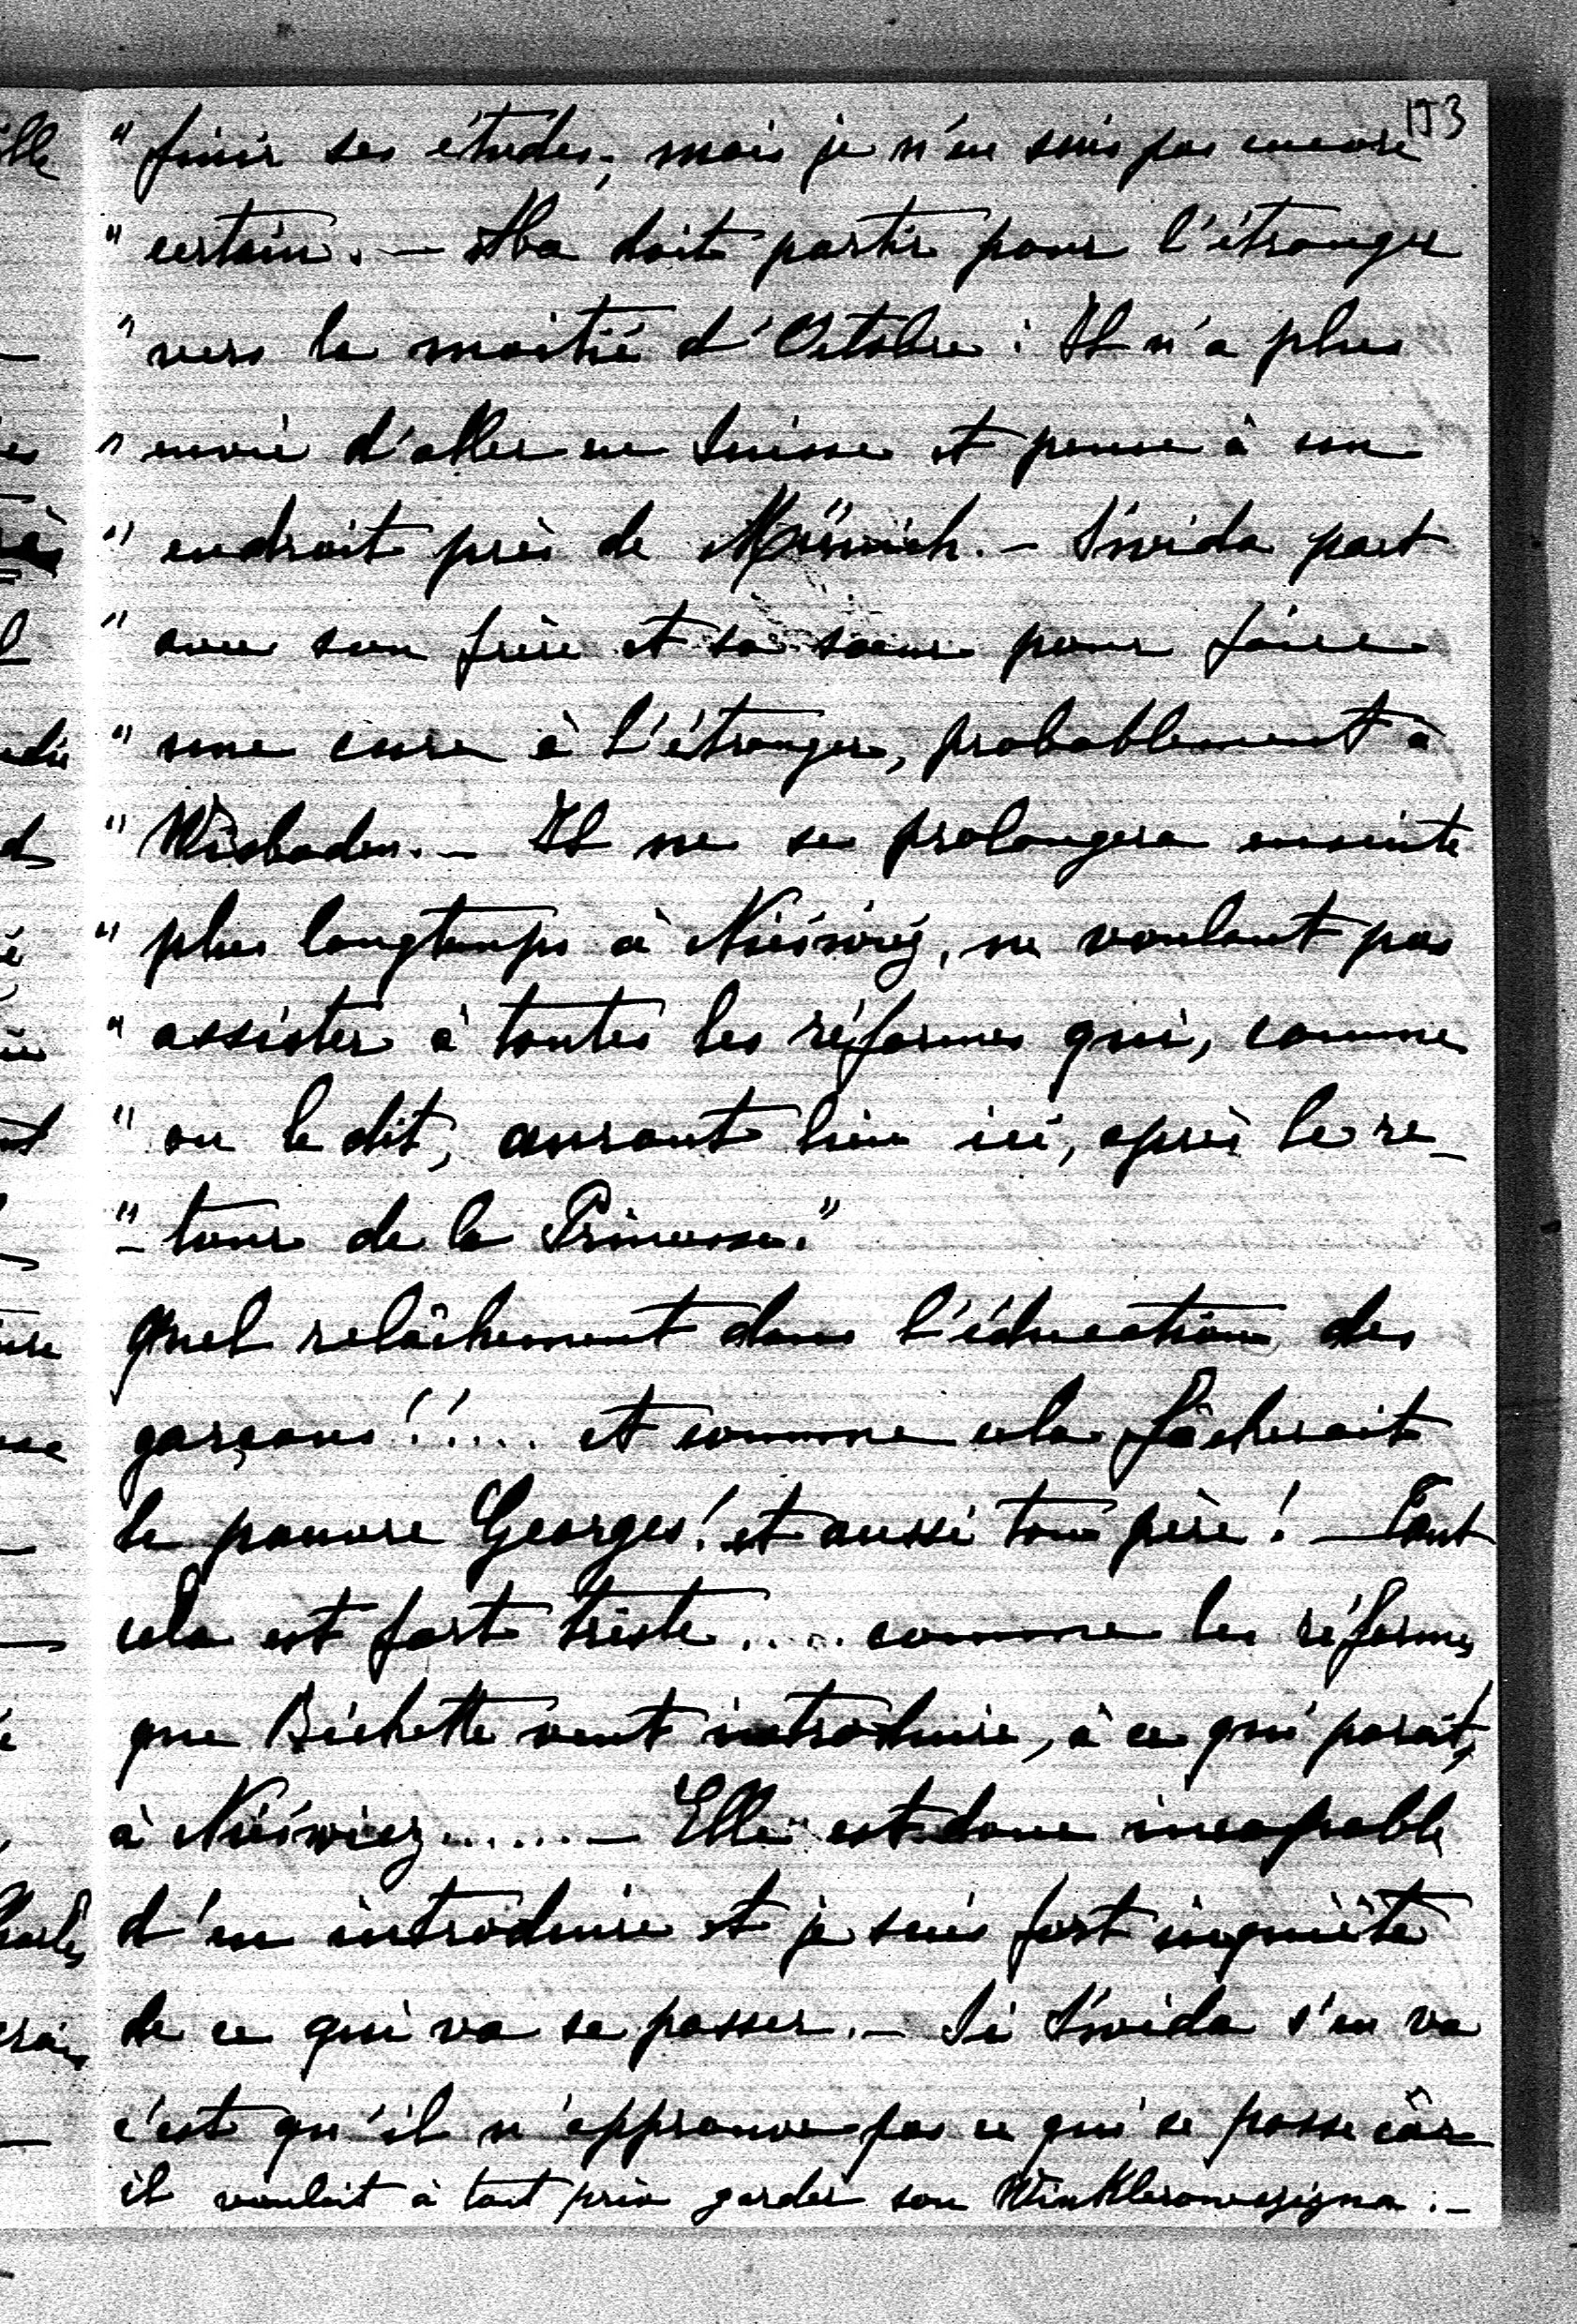 153
" finir ses études, mais je n'en suis pas encore
" certain. — Aba doit partir pour l'étranger
" vers la moitié d'Octobre : Il n'a plus
" envie d'aller en Suisse et pense à un
" endroit près de Münich. — Świda part
" avec son frère et sa sœur pour faire
" une cure à l'étranger, probablement à
" Wisbaden. — Il ne se prolongera ensuite
" plus longtemps à Nieśwież, ne voulant pas
" assister à toutes les réformes qui, comme
" on le dit, auront lieu ici, après le re-
"- tour de la Princesse."
Quel relâchement dans l'éducation des
garçons!!.... et comme cela fâcherait
le pauvre Georges! et aussi ton père! — Tout
cela est fort triste..... comme les réformes
que Bichette veut introduire, à ce qui parait,
à Nieświez...... — Elle est donc incapable
d'en introduire et je suis fort inquiète
de ce qui va se passer. — Si Świda s'en va
c'est qu'il n'approuve pas ce qui se passe car
il voulait à tout prix garder son :-